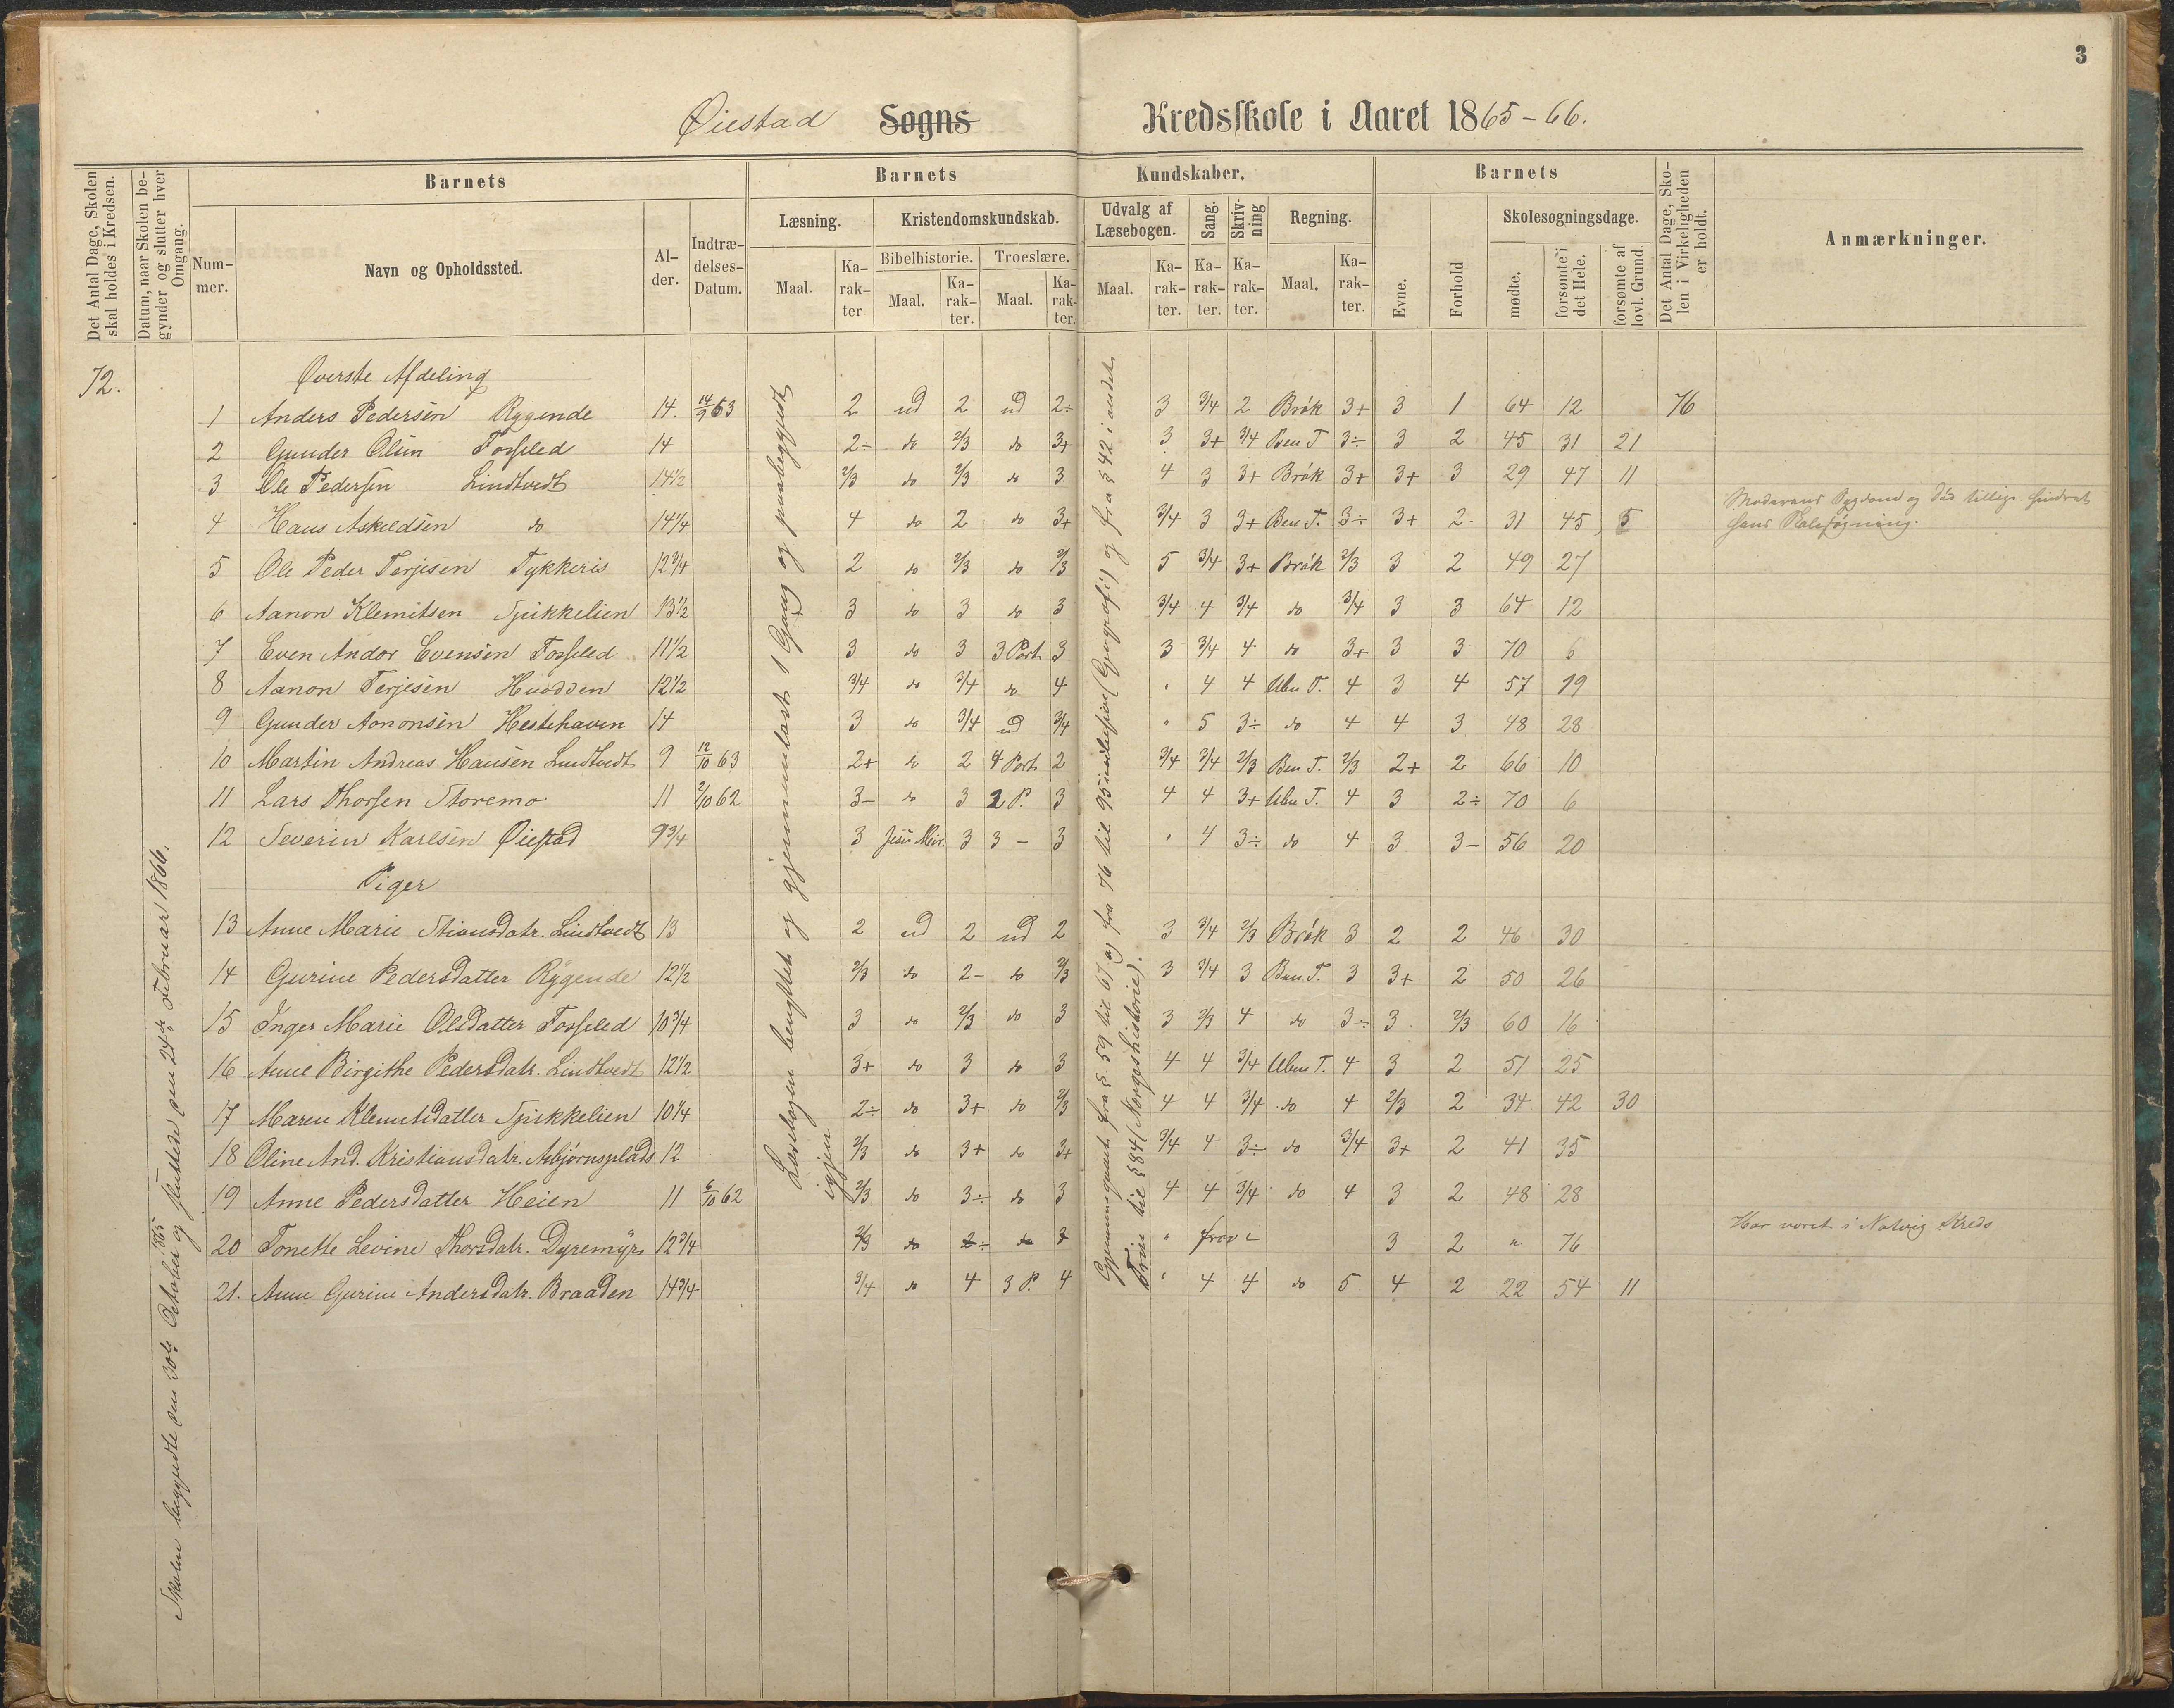 3
Øiestad Sogns Kredsskole i Aaret 1865-66.
Det Antal Dage, Skolen skal holdes i Kredsen.
Datum, naar Skolen begynder og slutter hver Omgang.
Barnets
Nummer.
Navn og Opholdssted.
Alder.
Indtrædelses-Datum.
Barnets Kundskaber.
Læsning.
Maal.
Karakter
Kristendomskundskab.
Bibelhistorie.
Maal.
Karakter.
Troeslære.
Maal.
Karakter.
Udvalg af Læsebogen.
Maal.
Karakter.
Sang.
Karakter.
Skrivning
Karakter.
Regning.
Maal.
Karakter.
Barnets
Evne.
Forhold
Skolesøgningsdage.
mødte.
forsømte i det Hele.
forsømte af lovl. Grund.
Det Antal Dage, Skolen i Virkeligheden er holdt.
Anmærkninger.
72.
Skolen begyndte den 30te Oktober 1865 og sluttede den 24de Februar 1866.
Læsebogen benyttet og gjennemlæst 1 Gang og paabegyndt igjen
Gjennemgaaet fra §. 59 til 67 og fra 76 til 95 inclusive (Geografi) og fra § 42 i andet Trin til § 84 (Norgeshistorie).
Øverste Afdeling
1 Anders Pedersen Rygende 14. 14/9 63 2 ud 2 ud 2÷ 3 3/4 2 Brøk 3+ 3 1 64 12 76
2 Gunder Olsen Fosseled 14 2÷ do 2/3 do 3+ 3 3+ 3/4 Ben T 3÷ 3 2 45 31 21
3 Ole Pedersen Lindtvedt 14 1/2 2/3 do 2/3 do 3 4 3 3+ Brøk 3+ 3+ 3 29 47 11
4 Hans Askildsen do 14 1/4 4 do 2 do 3+ 3/4 3 3+ Ben T. 3÷ 3+ 2- 31 45 5 Moderens Sygdom og Død tillige hindret hans Skolesøgning.
5 Ole Peder Terjesen Tykkeris 12 3/4 2 do 2/3 do 2/3 5 3/4 3+ Brøk 2/3 3 2 49 27
6 Aanon Klemitsen Spikkelien 13 1/2 3 do 3 do 3 3/4 4 3/4 do 3/4 3 3 64 12
7 Even Andor Evensen Fosseled 11 1/2 3 do 3 3 Part 3 3 3/4 4 do 3+ 3 3 70 6
8 Aanon Terjesen Hvodden 12 1/2 3/4 do 3/4 do 4 " 4 4 Uben T. 4 3 4 57 19
9 Gunder Aanonsen Hestehaven 14 3 do 3/4 ud 3/4 " 5 3÷ do 4 4 3 48 28
10 Martin Andreas Hansen Lindtvedt 9 12/10 63 2+ do 2 4 Part 2 3/4 3/4 2/3 Ben T. 2/3 2+ 2 66 10
11 Lars Thorsen Storemo 11 2/10 62 3- do 3 2 P. 3 4 4 3+ Uben T. 4 3 2÷ 70 6
12 Severin Karlsen Øiestad 9 3/4 3 Jesu Mir. 3 3 - 3 " 4 3÷ do 4 3 3- 56 20
Piger
13 Anne Marie Stiansdatr. Lindtvedt 13 2 ud 2 ud 2 3 3/4 2/3 Brøk 3 2 2 46 30
14 Gurine Pedersdatter Rygende 12 1/2 2/3 do 2- do 2/3 3 3/4 3 Ben. T. 3 3+ 2 50 26
15 Inger Marie Olsdatter Fosseled 10 3/4 3 do 2/3 do 3 3 2/3 4 do 3÷ 3 2/3 60 16
16 Anne Birgithe Pedersdatr. Lindtvedt 12 1/2 3+ do 3 do 3 4 4 3/4 Uben T. 4 3 2 51 25
17 Maren Klemetsdatter Spikkelien 10 1/4 2÷ do 3+ do 2/3 4 4 3/4 do 4 2/3 2 34 42 30
18 Oline And. Kristiansdatr. Asbjørnsplads 12 2/3 do 3+ do 3+ 3/4 4 3÷ do 3/4 3+ 2 41 35
19 Anne Pedersdatter Heien 11 6/10 62 2/3 do 3÷ do 3 4 4 3/4 do 4 3 2 48 28
20 Tonette Levine Thorsdatr. Dyremyr 12 3/4 2/3 do 2÷ do 3 " 3 2 " 76 Har været i Natvig Kreds
21. Anne Gurine Andersdatr. Braaden 14 3/4 3/4 do 4 3 P. 4 " 4 4 do 5 4 2 22 54 11